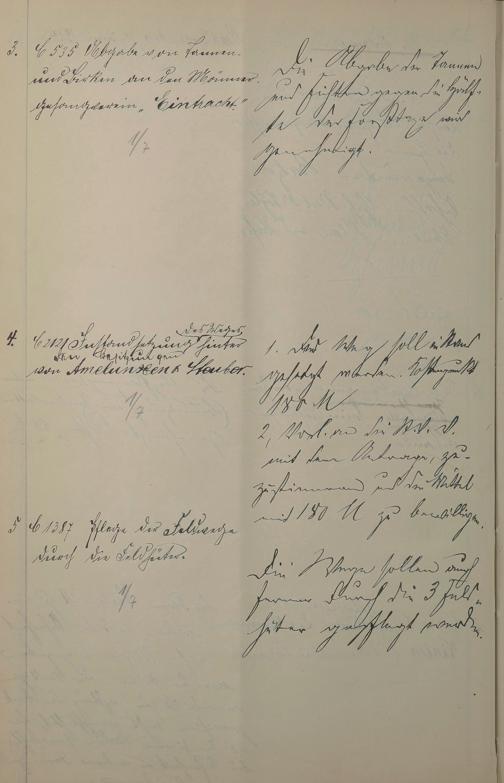 3. C 535 Abgabe von Tannen
und Birken an den Männer-
gesangverein "Eintracht"
1/7
Die Abgabe der Tannen
und Fichten gegen die Hälf-
te der Forsttaxe wird
genehmigt.
4. C 2121 Instandsetzung des Weges hinter
den Besitzungen
von Amelunxen & Stauber.
1/7
1. Der Weg soll instand
gesetzt werden. Kostenpunkt
180 M
2, Vorl. an die St. V. V.
mit dem Antrage, zu-
zustimmen und die Mittel
mit 180 M zu bewilligen.
5 C 1387 Pflege der Feldwege
durch die Feldhüter.
1/7
Die Wege sollen auch
ferner durch die 3 Feld-
hüter gepflegt werden.